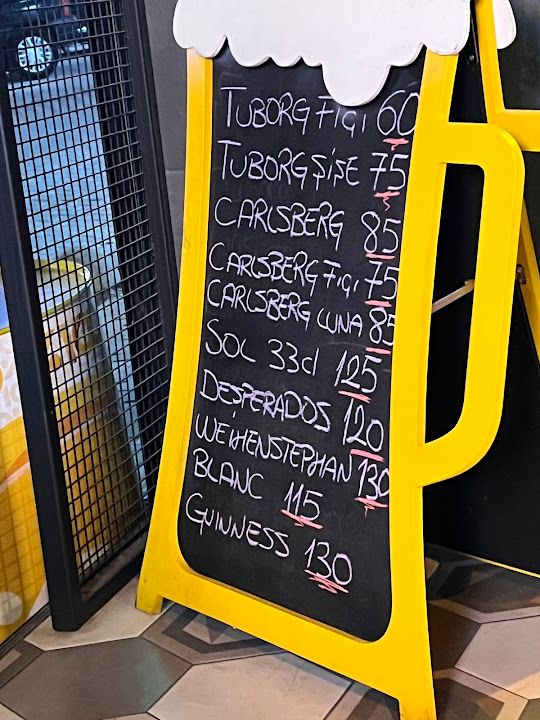 TUBORG FIÇI 60
TUBORG ŞİŞE 75
CARLSBERG 85
CARLSBERG FIÇI 75
CARLSBERG LUNA 85
SOL 33cl 125
DESPERADOS 120
WEIHENSTEPHAN 130
BLANC 115
GUINNESS 130